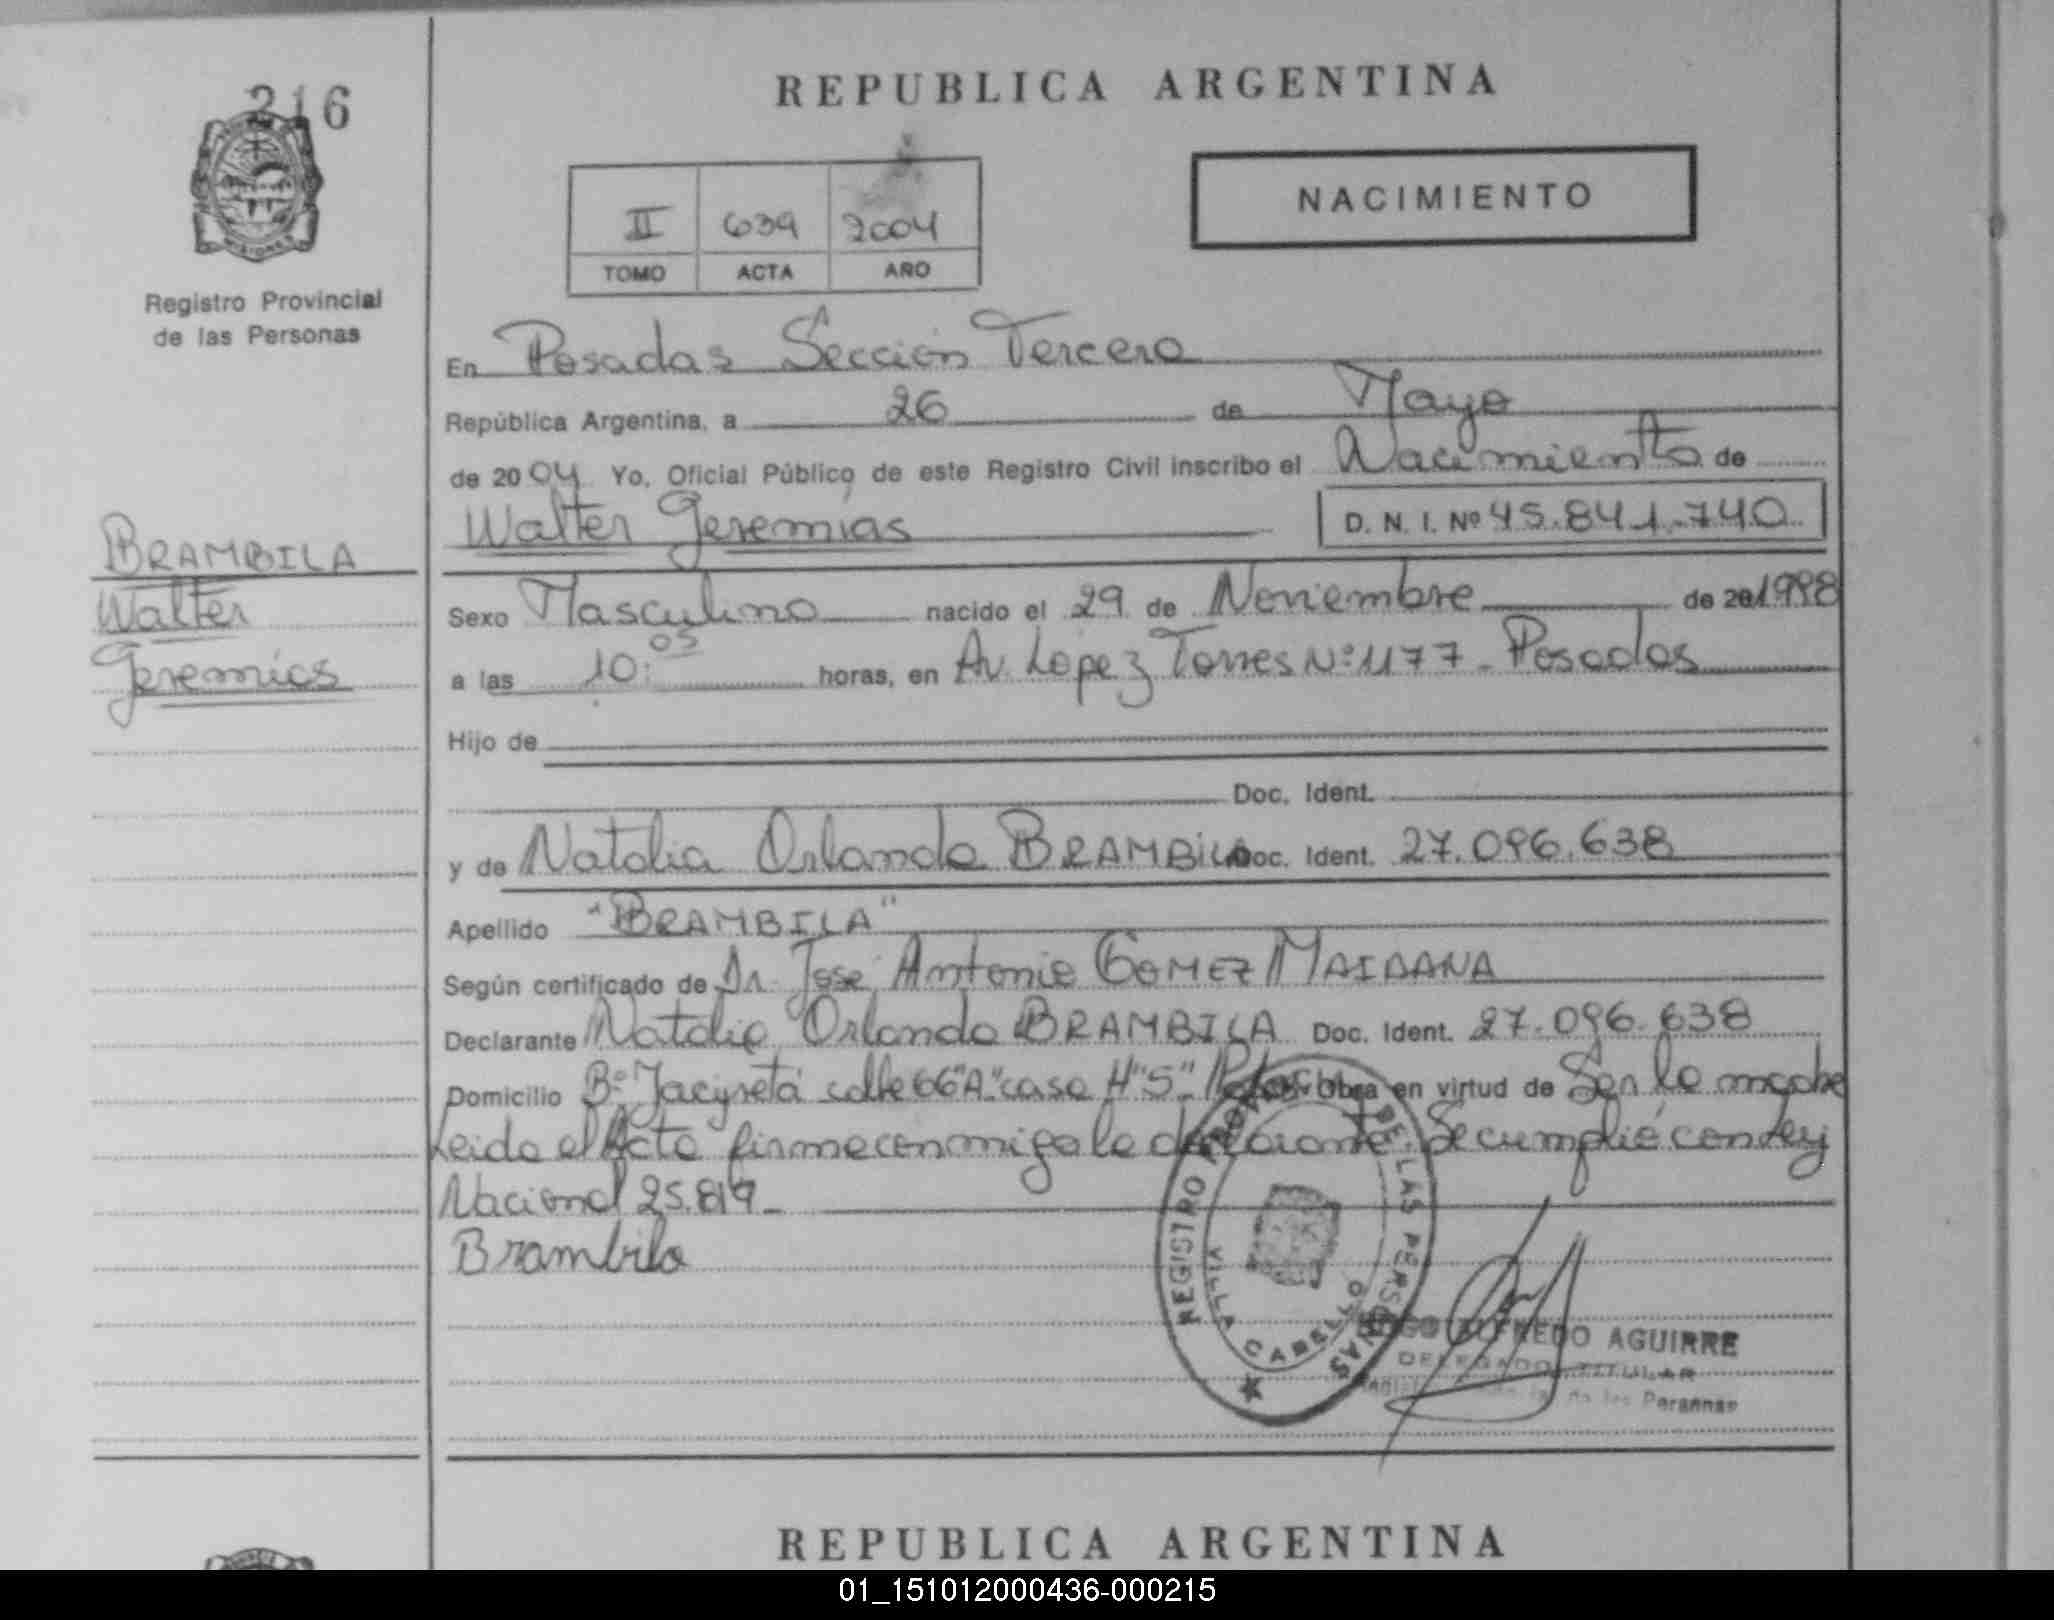 216
REPUBLICA ARGENTINA
NACIMIENTO
II 639 2004
TOMO ACTA AÑO
MISIONES
Registro Provincial
de las Personas
En Posadas Sección Tercera
República Argentina, a 26 de Mayo
de 2004 Yo, Oficial Público de este Registro Civil inscribo el Nacimiento de
Walter Geremías D. N. I. Nº 45.841.740
BRAMBILA
Walter
Geremías
Sexo Masculino nacido el 29 de Noviembre de 20 1998
a las 10:05 horas, en Av. Lopez Torres Nº 1177 - Posadas
Hijo de
Doc. Ident.
y de Natalia Orlanda BRAMBILA Doc. Ident. 27.096.638
Apellido "BRAMBILA"
Según certificado de Dr. Jose Antonio GOMEZ MAIDANA
Declarante Natalia Orlanda BRAMBILA Doc. Ident. 27.096.638
Domicilio Bº Yacyretá calle 66"A" casa 4"S" Obra en virtud de Ser la madre
Leida el Acta firma conmigo la declarante. Se cumplió con Ley
Nacional 25.819-
Brambila
REGISTRO DE LAS PERSONAS
VILLA CABELLO
ALFREDO AGUIRRE
DELEGADO TITULAR
de las Personas
REPUBLICA ARGENTINA
01_151012000436-000215